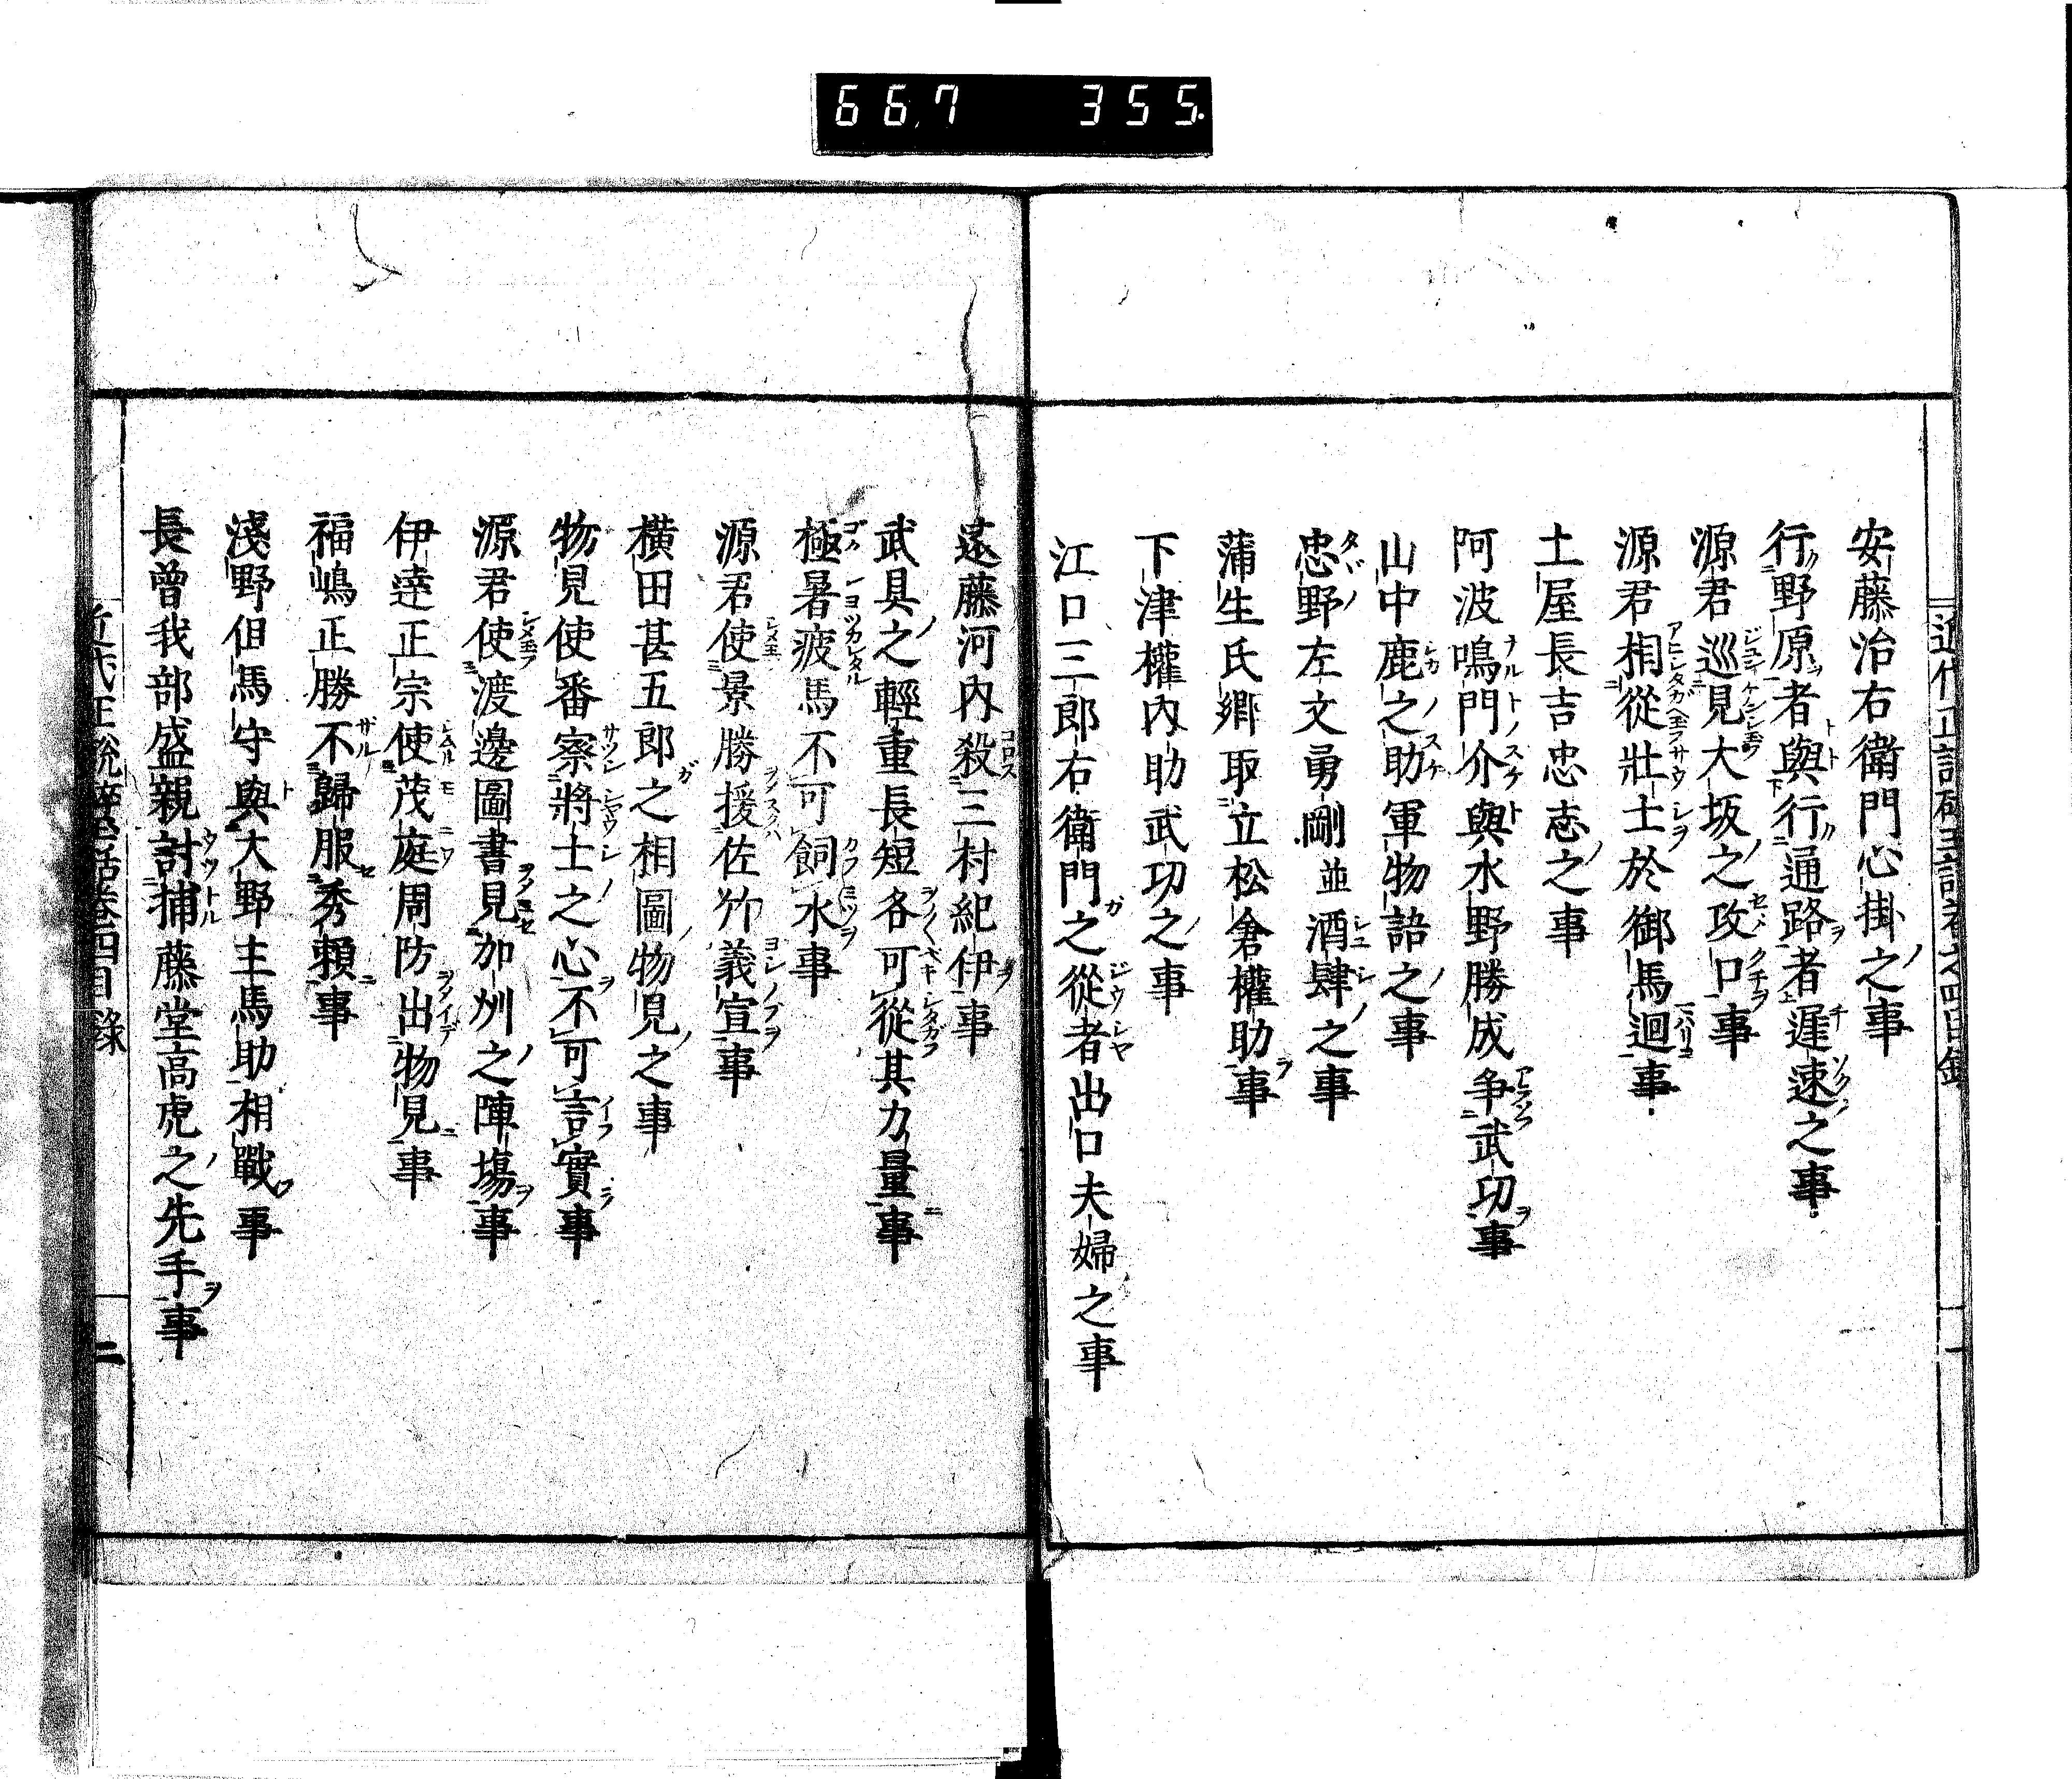 667 355
安藤治右衛門心掛之事
行野原者與行通路者遲速之事
源君巡見大坂之攻口事
源君相從壯士於御馬迴事
土屋長吉忠志之事
阿波鳴門介與水野勝成争武功事
山中鹿之助軍物語之事
忠野左文勇剛並酒肆之事
蒲生氏郷取立松倉權助事
下津權内助武功之事
江口三郎右衛門之從者出口夫婦之事
遠藤河内殺三村紀伊事
武具之輕重長短各可從其力量事
極暑疲馬不可飼水事
源君使景勝援佐竹義宣事
横田甚五郎之相圖物見之事
物見使番察將士之心不可言實事
源君使渡邊圖書見加州之陣塲事
伊達正宗使茂庭周防出物見事
福嶋正勝不歸服秀頼事
淺野但馬守與大野主馬助相戰事
長曽我部盛親討捕藤堂高虎之先手事
二